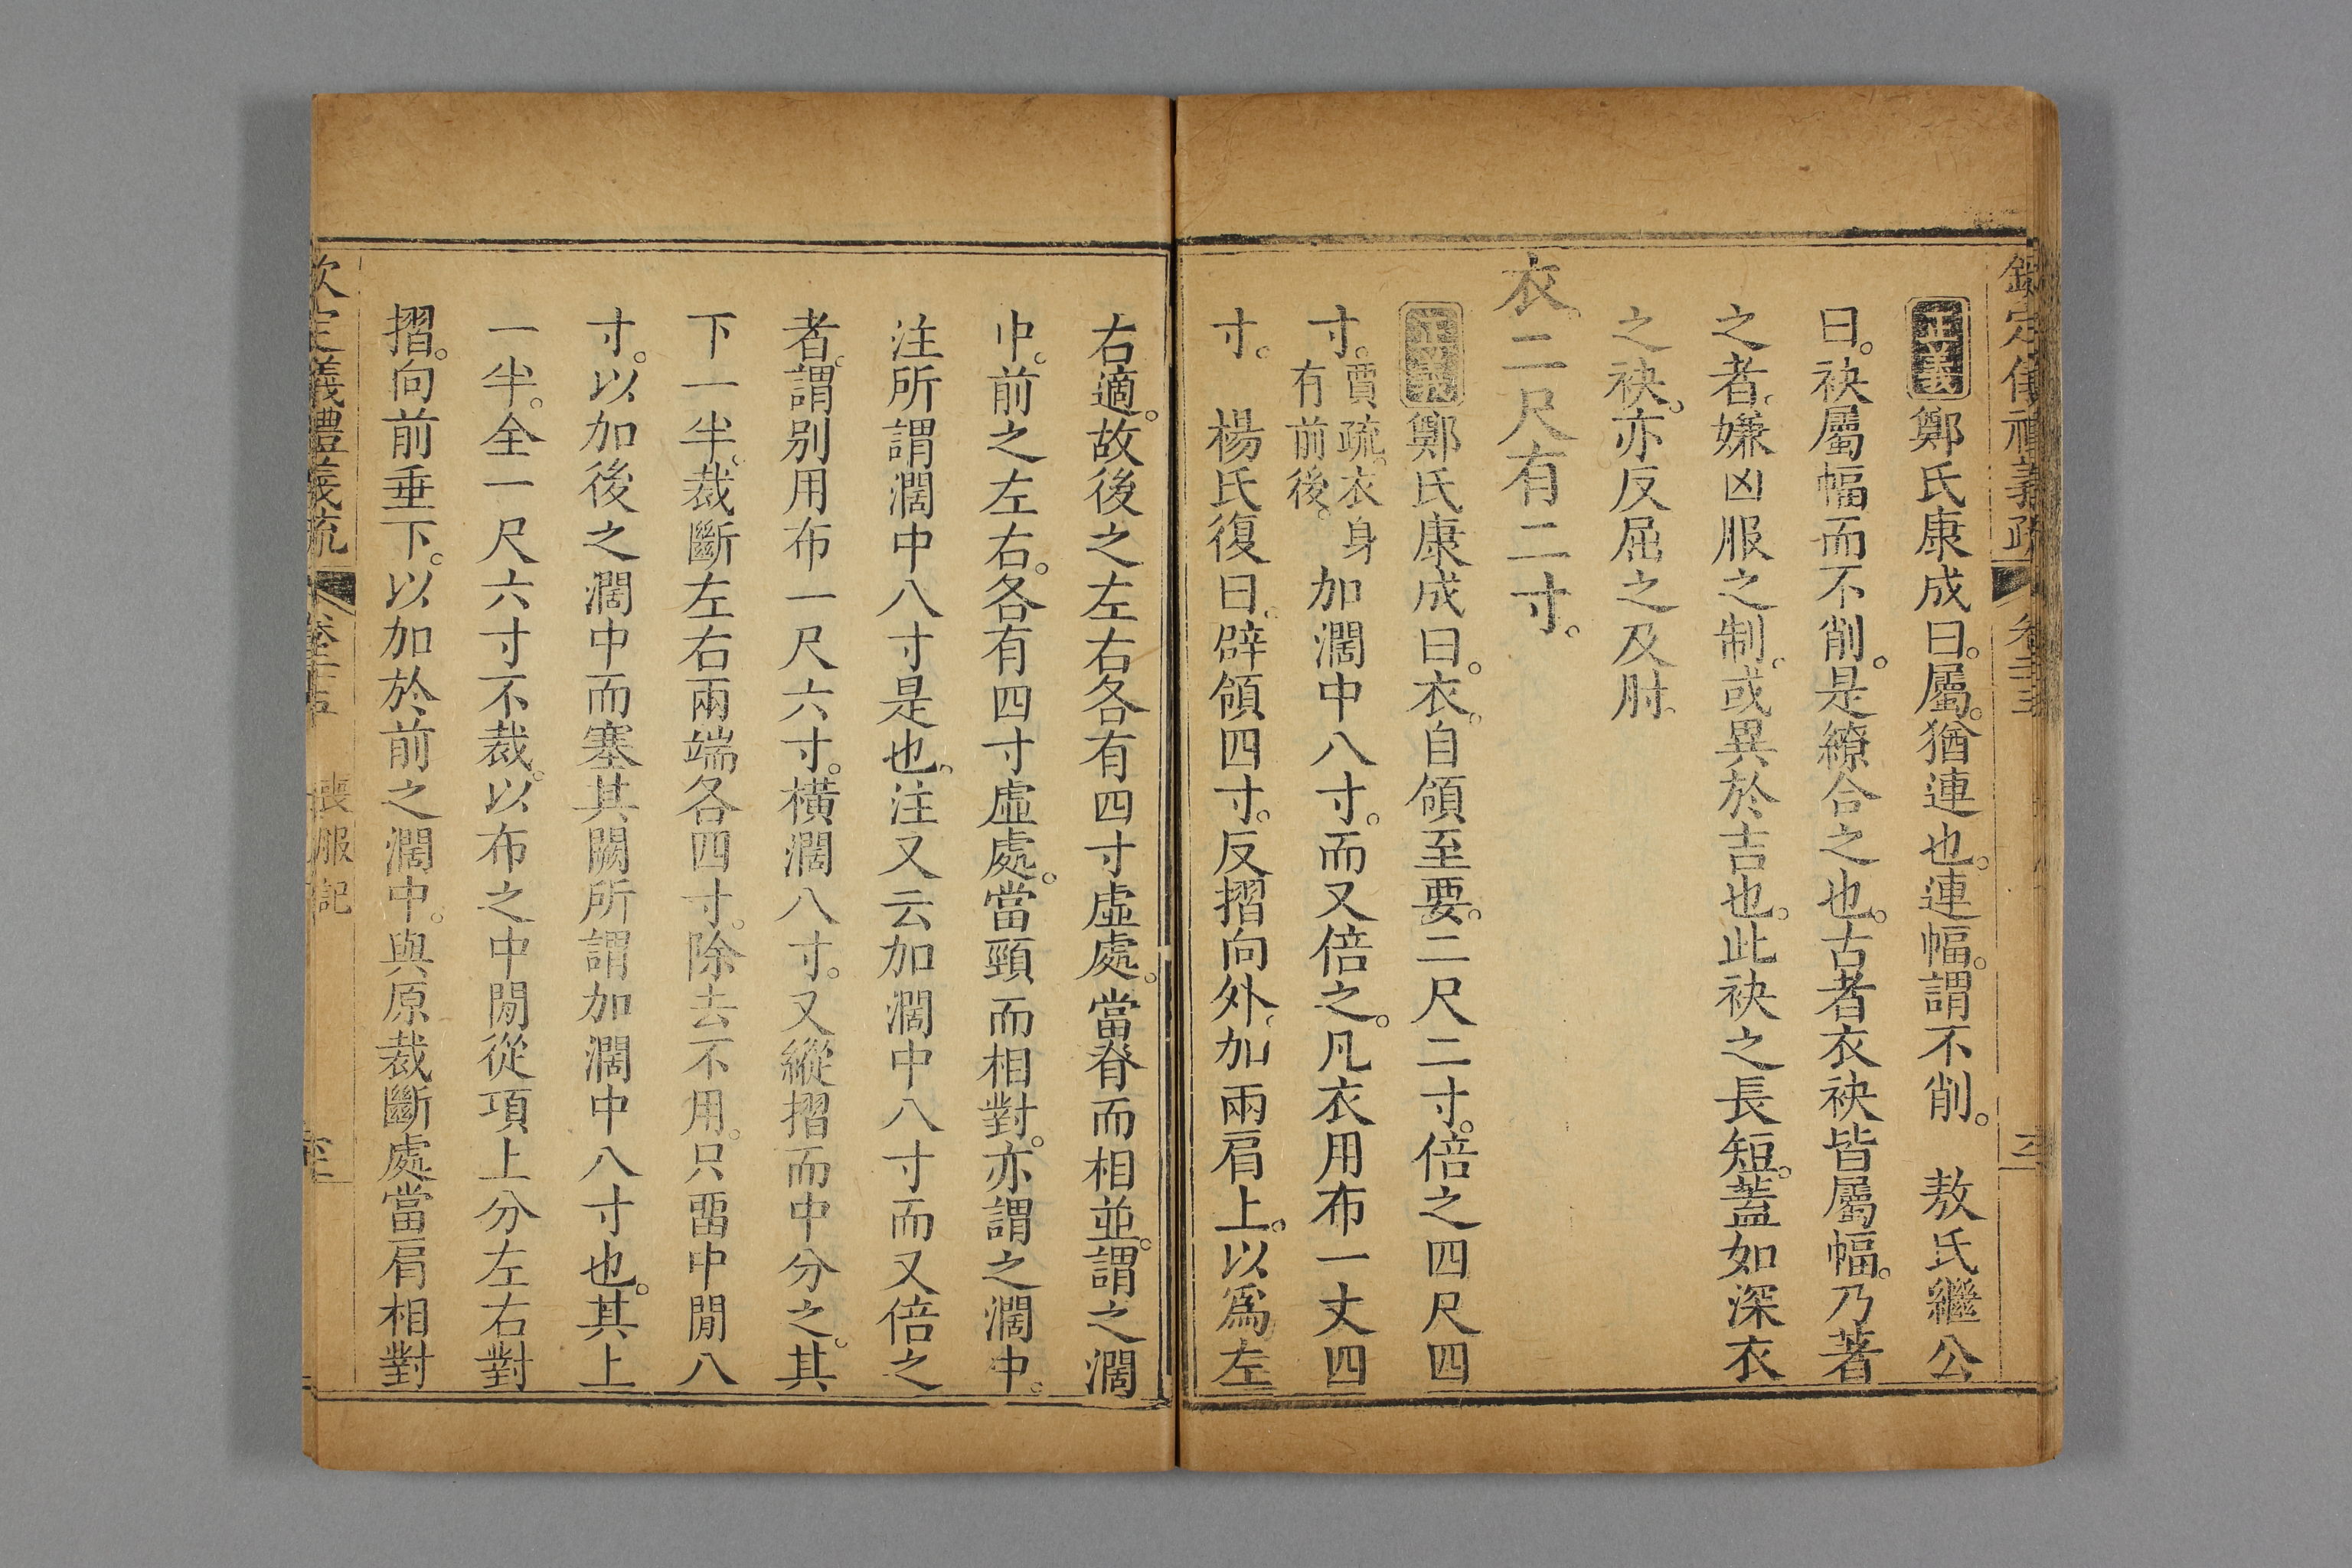 正義鄭氏康成曰。屬。猶連也。連幅。謂不削。　敖氏繼公
曰。袂屬幅而不削。是繚合之也。古者衣袂皆屬幅。乃著
之者。嫌凶服之制。或異於吉也。此袂之長短。蓋如深衣
之袂。亦反屈之及肘。
衣。二尺有二寸。
正義鄭氏康成曰。衣。自領至要。二尺二寸。倍之四尺四
寸。賈疏。衣身有前後。加濶中八寸。而又倍之。凡衣用布一丈四
寸。　楊氏復曰。辟領四寸。反摺向外。加兩肩上。以爲左
右適。故後之左右各有四寸虛處。當脊而相並。謂之濶
中。前之左右。各有四寸虛處。當頸而相對。亦謂之濶中。
注所謂濶中八寸是也。注又云加濶中八寸而又倍之
者。謂别用布一尺六寸。橫濶八寸。又縱摺而中分之。其
下一半。裁斷左右兩端各四寸。除去不用。只畱中閒八
寸。以加後之濶中而塞其闕所謂加濶中八寸也。其上
一半。全一尺六寸不裁。以布之中閒從項上分左右對
摺。向前垂下。以加於前之濶中。與原裁斷處當肩相對
欽定義禮義疏　喪服記